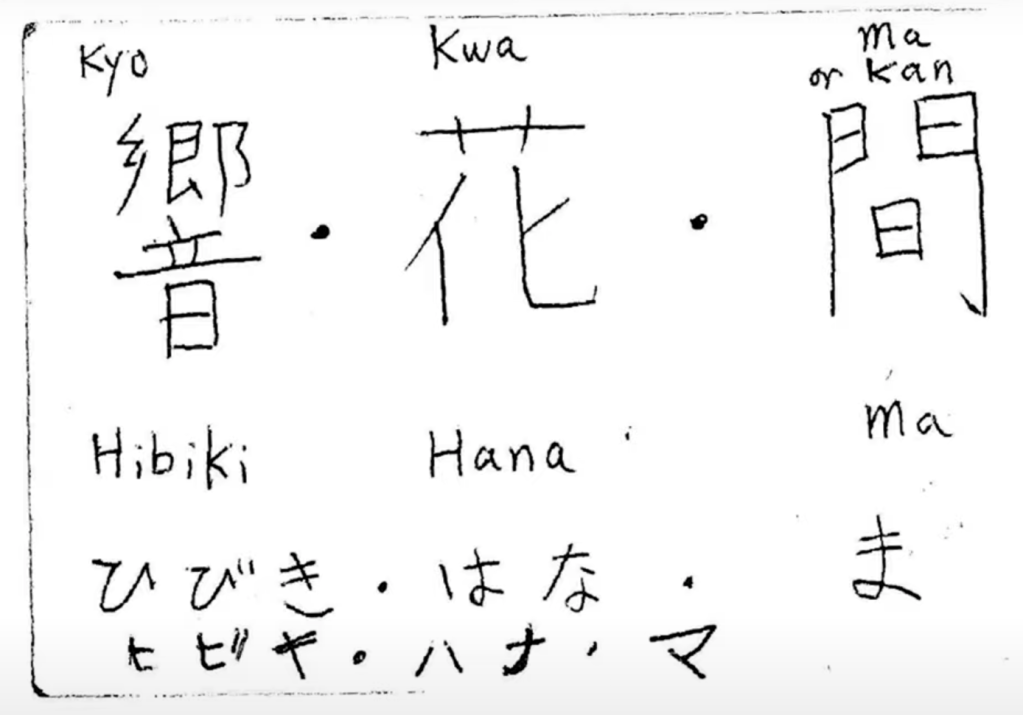 Kyo Kwa ma
or Kan
響・花・間
Hibiki Hana ma
ひびき・はな・ま
ヒビキ・ハナ・マ